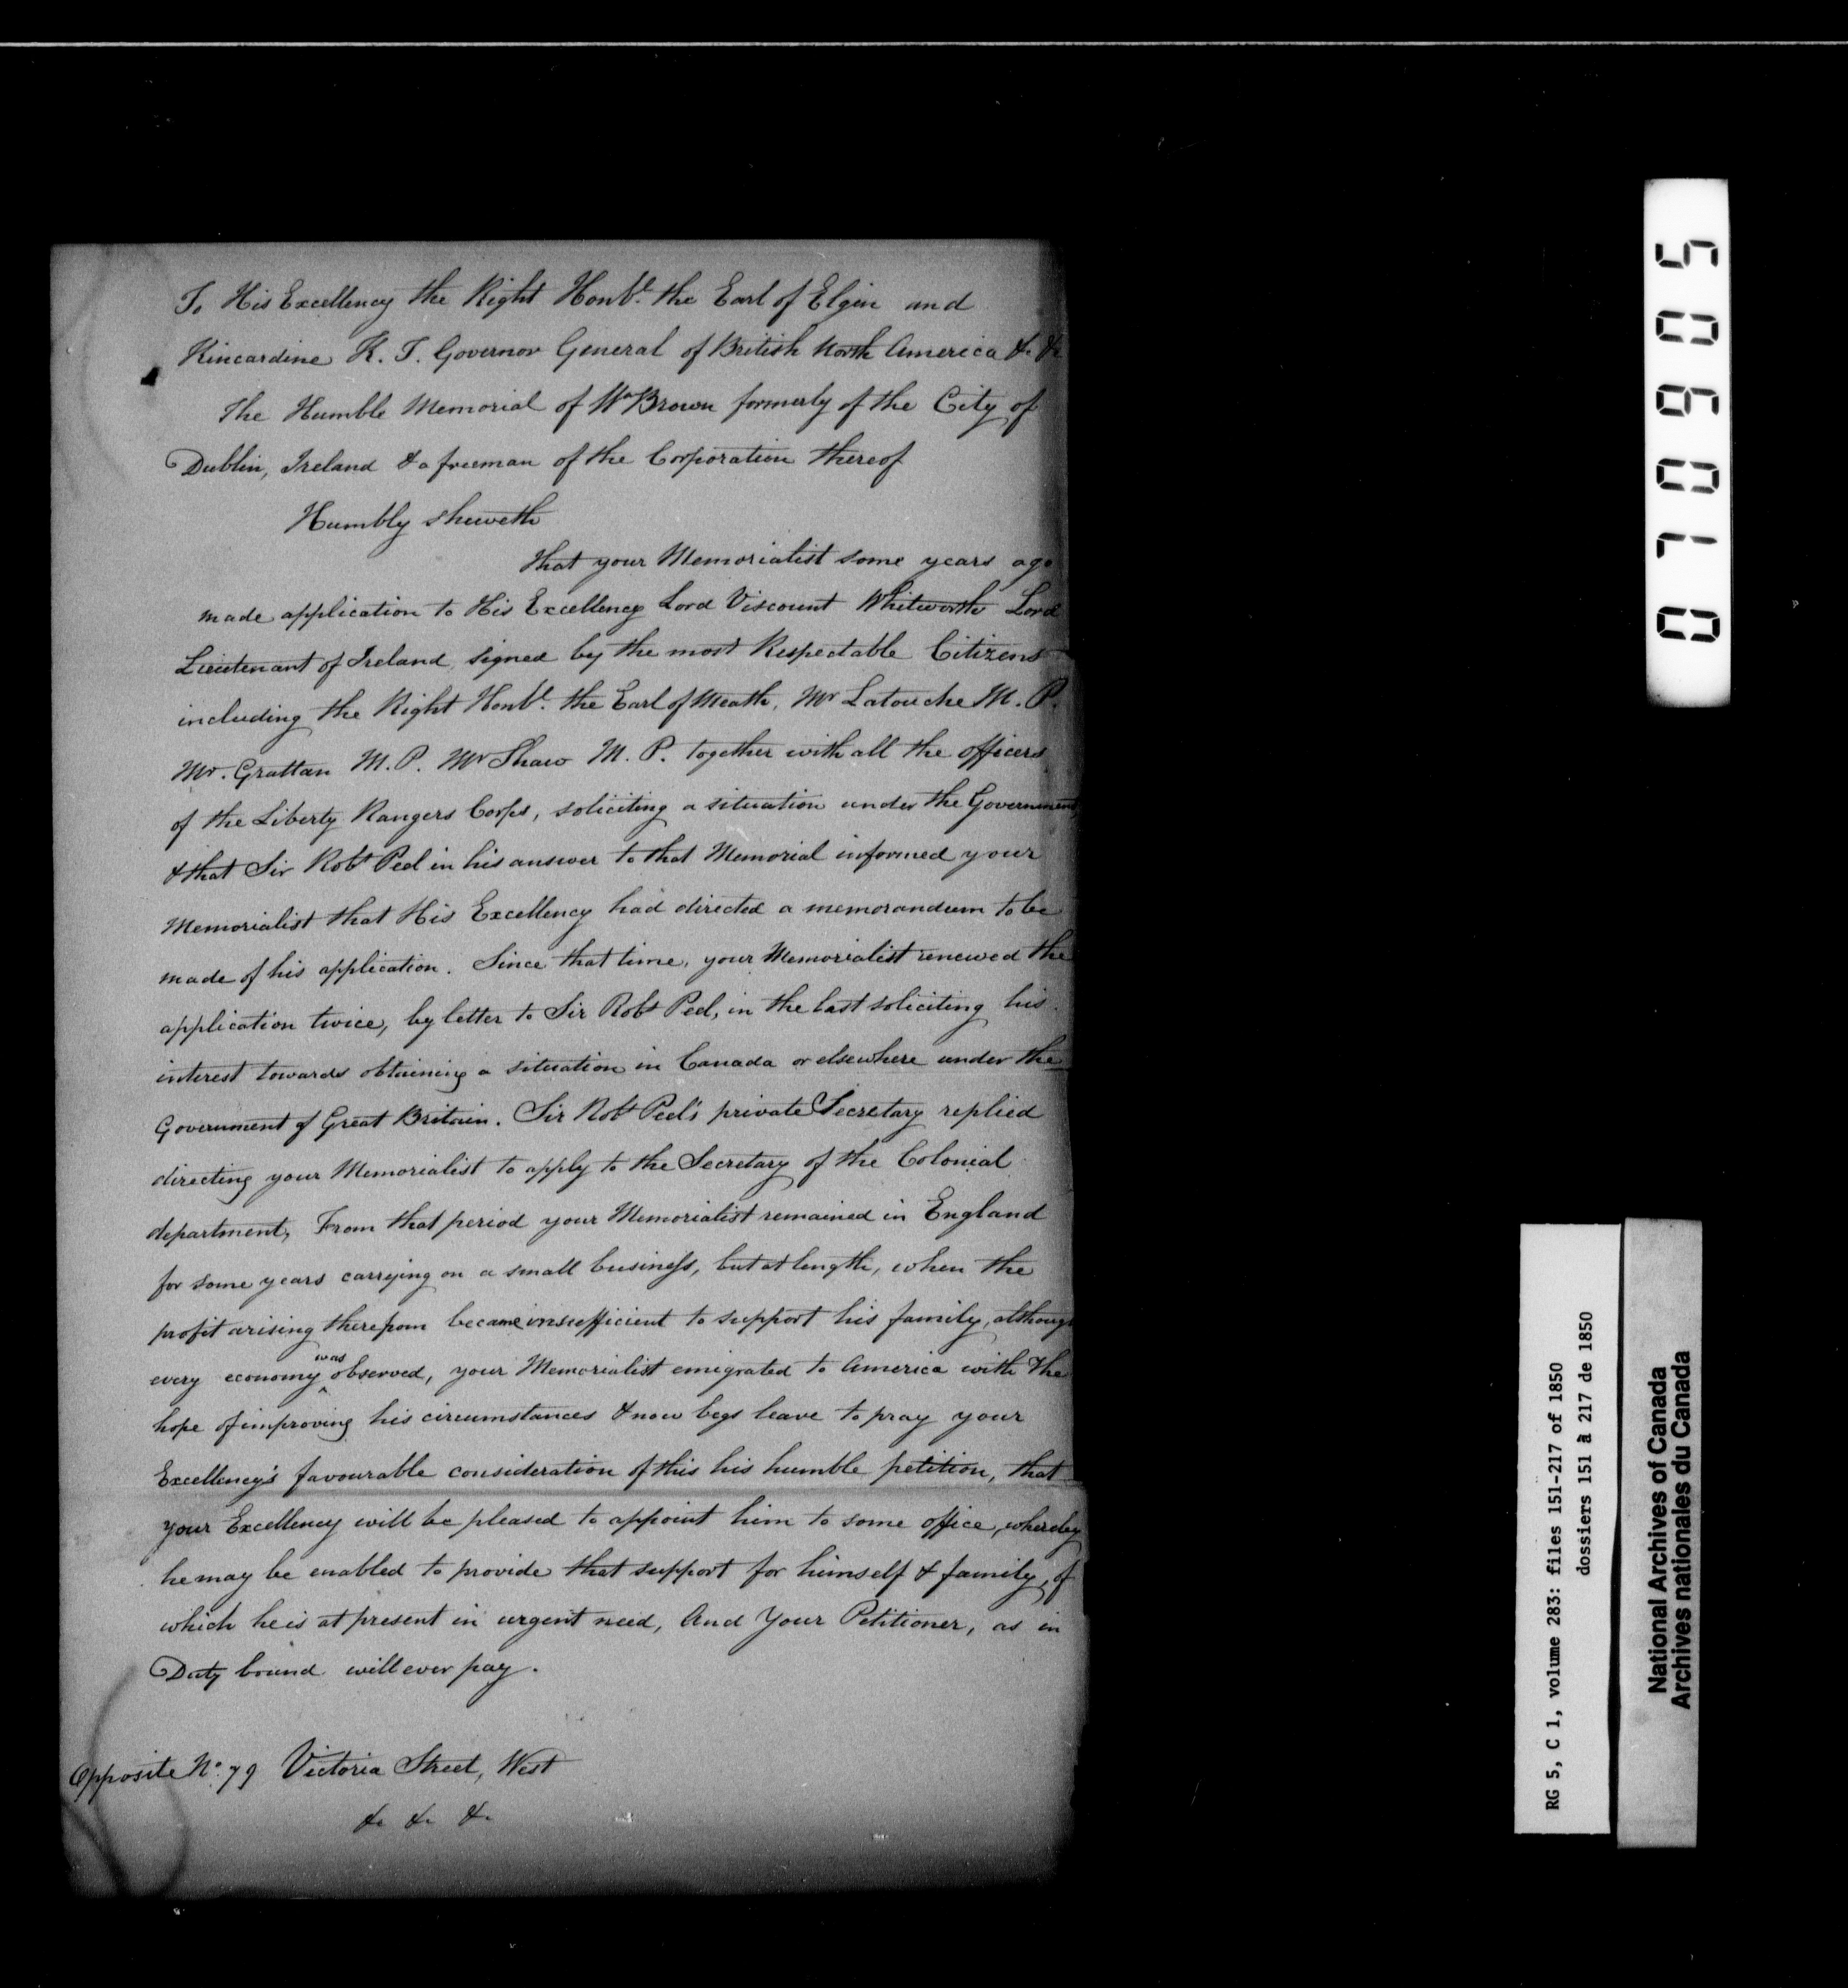 To His Excellency the Right Honbl. the Earl of Elgin and
Kincardine K. T. Governor General of British North America &c &c
The Humble Memorial of Wm Brown formerly of the City of
Dublin, Ireland & a freeman of the Corporation thereof
Humbly sheweth
That your Memorialist some years ago
made application to His Excellency Lord Viscount Whitworth Lord
Lieutenant of Ireland signed by the most Respectable Citizens
including the Right Honbl. the Earl of Meath, Mr Latouche M. P.
Mr. Grattan M. P. Mr Shaw M. P. together with all the officers
of the Liberty Rangers Corps, soliciting a situation under the Government
& that Sir Robt Peel in his answer to that Memorial informed your
Memorialist that His Excellency had directed a memorandum to be
made of his application. Since that time, your Memorialist renewed the
application twice, by letter to Sir Robt Peel, in the last soliciting his
interest towards obtaining a situation in Canada or elsewhere under the
Government of Great Britain. Sir Robt Peel's private Secretary replied
directing your Memorialist to apply to the Secretary of the Colonial
department, From that period your Memorialist remained in England
for some years carrying on a small business, but at length, when the
profit arising therefrom became insufficient to support his family, although
every economy was observed, your Memorialist emigrated to America with the
hope of improving his circumstances & now begs leave to pray your
Excellency's favourable consideration of this his humble petition, that
your Excellency will be pleased to appoint him to some office, whereby
he may be enabled to provide that support for himself & family, of
which he is at present in urgent need, And Your Petitioner, as in
Duty bound will ever pay.
Opposite No. 79 Victoria Street, West
&c &c &c
070605
RG 5, C 1, volume 283: files 151-217 of 1850
dossiers 151 à 217 de 1850
National Archives of Canada
Archives nationales du Canada